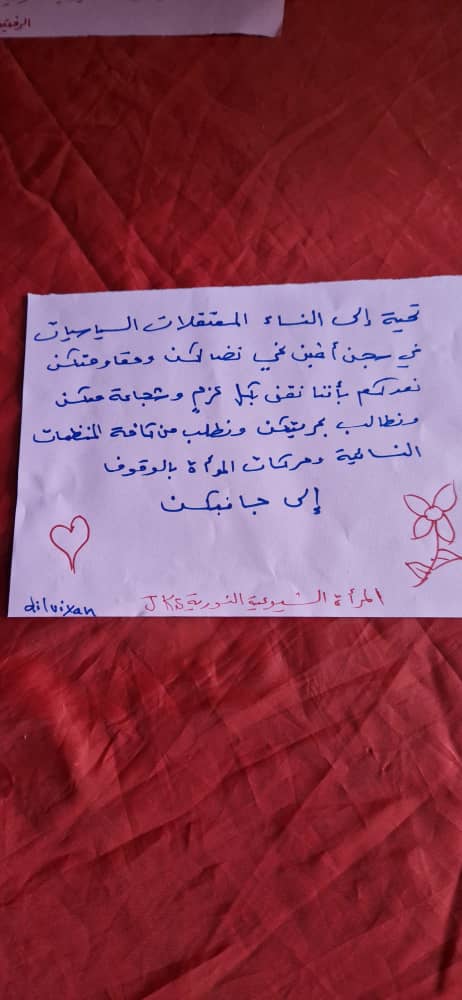 الرفيق
تحية إلى النساء المعتقلات السياسيات
في سجن أفين في نضالكن ومقاومتكن
نعدكم بأننا نقف بكل عزم وشجاعة معكن
ونطالب بحريتكن ونطلب من كافة المنظمات
النسائية وحركات المرأة بالوقوف
إلى جانبكن
المرأة الشيوعية الثورية JKŞ
dilvixan